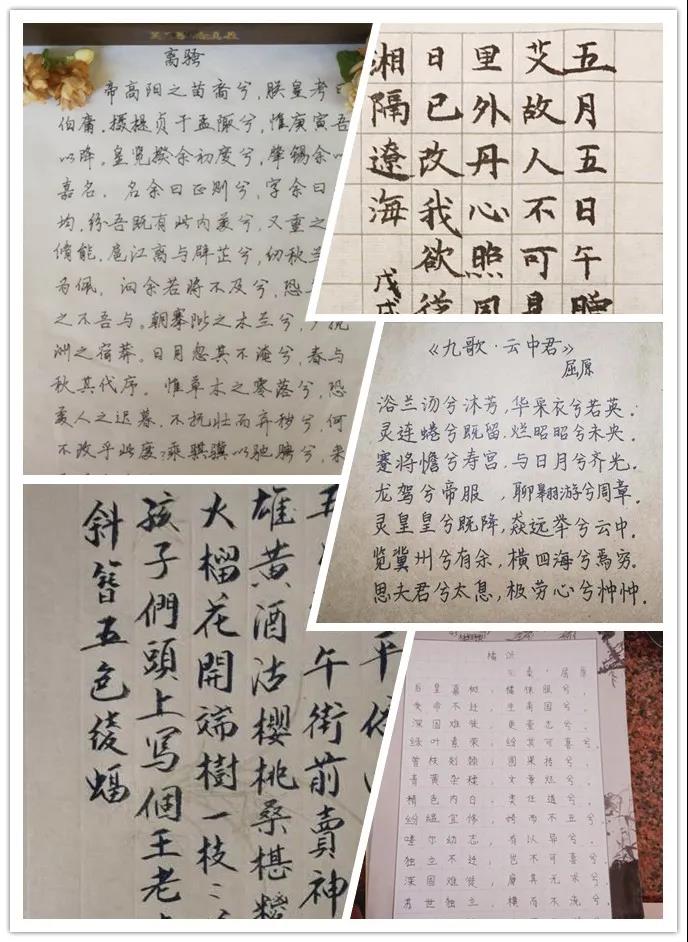 离骚
帝高阳之苗裔兮，朕皇考曰
伯庸。摄提贞于孟陬兮，惟庚寅吾
以降。皇览揆余初度兮，肇锡余以
嘉名。名余曰正则兮，字余曰
均，纷吾既有此内美兮，又重之
脩能。扈江离与辟芷兮，纫秋兰
为佩。汩余若将不及兮，恐
之不吾与。朝搴阰之木兰兮，
洲之宿莽。日月忽其不淹兮，春与
秋其代序。惟草木之零落兮，恐
美人之迟暮。不抚壮而弃秽兮，何
不改乎此度？乘骐骥以驰骋兮，来
五月五日午赠
艾故人不可
里外丹心照
日已改我欲从
湘隔辽海
《九歌·云中君》
屈原
浴兰汤兮沐芳，华采衣兮若英。
灵连蜷兮既留，烂昭昭兮未央。
蹇将憺兮寿宫，与日月兮齐光。
龙驾兮帝服，聊翱游兮周章。
灵皇皇兮既降，猋远举兮云中。
览冀州兮有余，横四海兮焉穷。
思夫君兮太息，极劳心兮忡忡。
午街前賣神
雄黄酒沽櫻桃桑椹
火榴花開端樹一枝
孩子們頭上写個王老
斜簪五色绫蝠
橘颂
屈原
后皇嘉树，橘徕服兮。
受命不迁，生南国兮。
深固难徙，更壹志兮。
绿叶素荣，纷其可喜兮。
曾枝剡棘，圆果抟兮。
青黄杂糅，文章烂兮。
精色内白，类任道兮。
纷缊宜修，姱而不丑兮。
嗟尔幼志，有以异兮。
独立不迁，岂不可喜兮。
深固难徙，廓其无求兮。
苏世独立，横而不流兮。